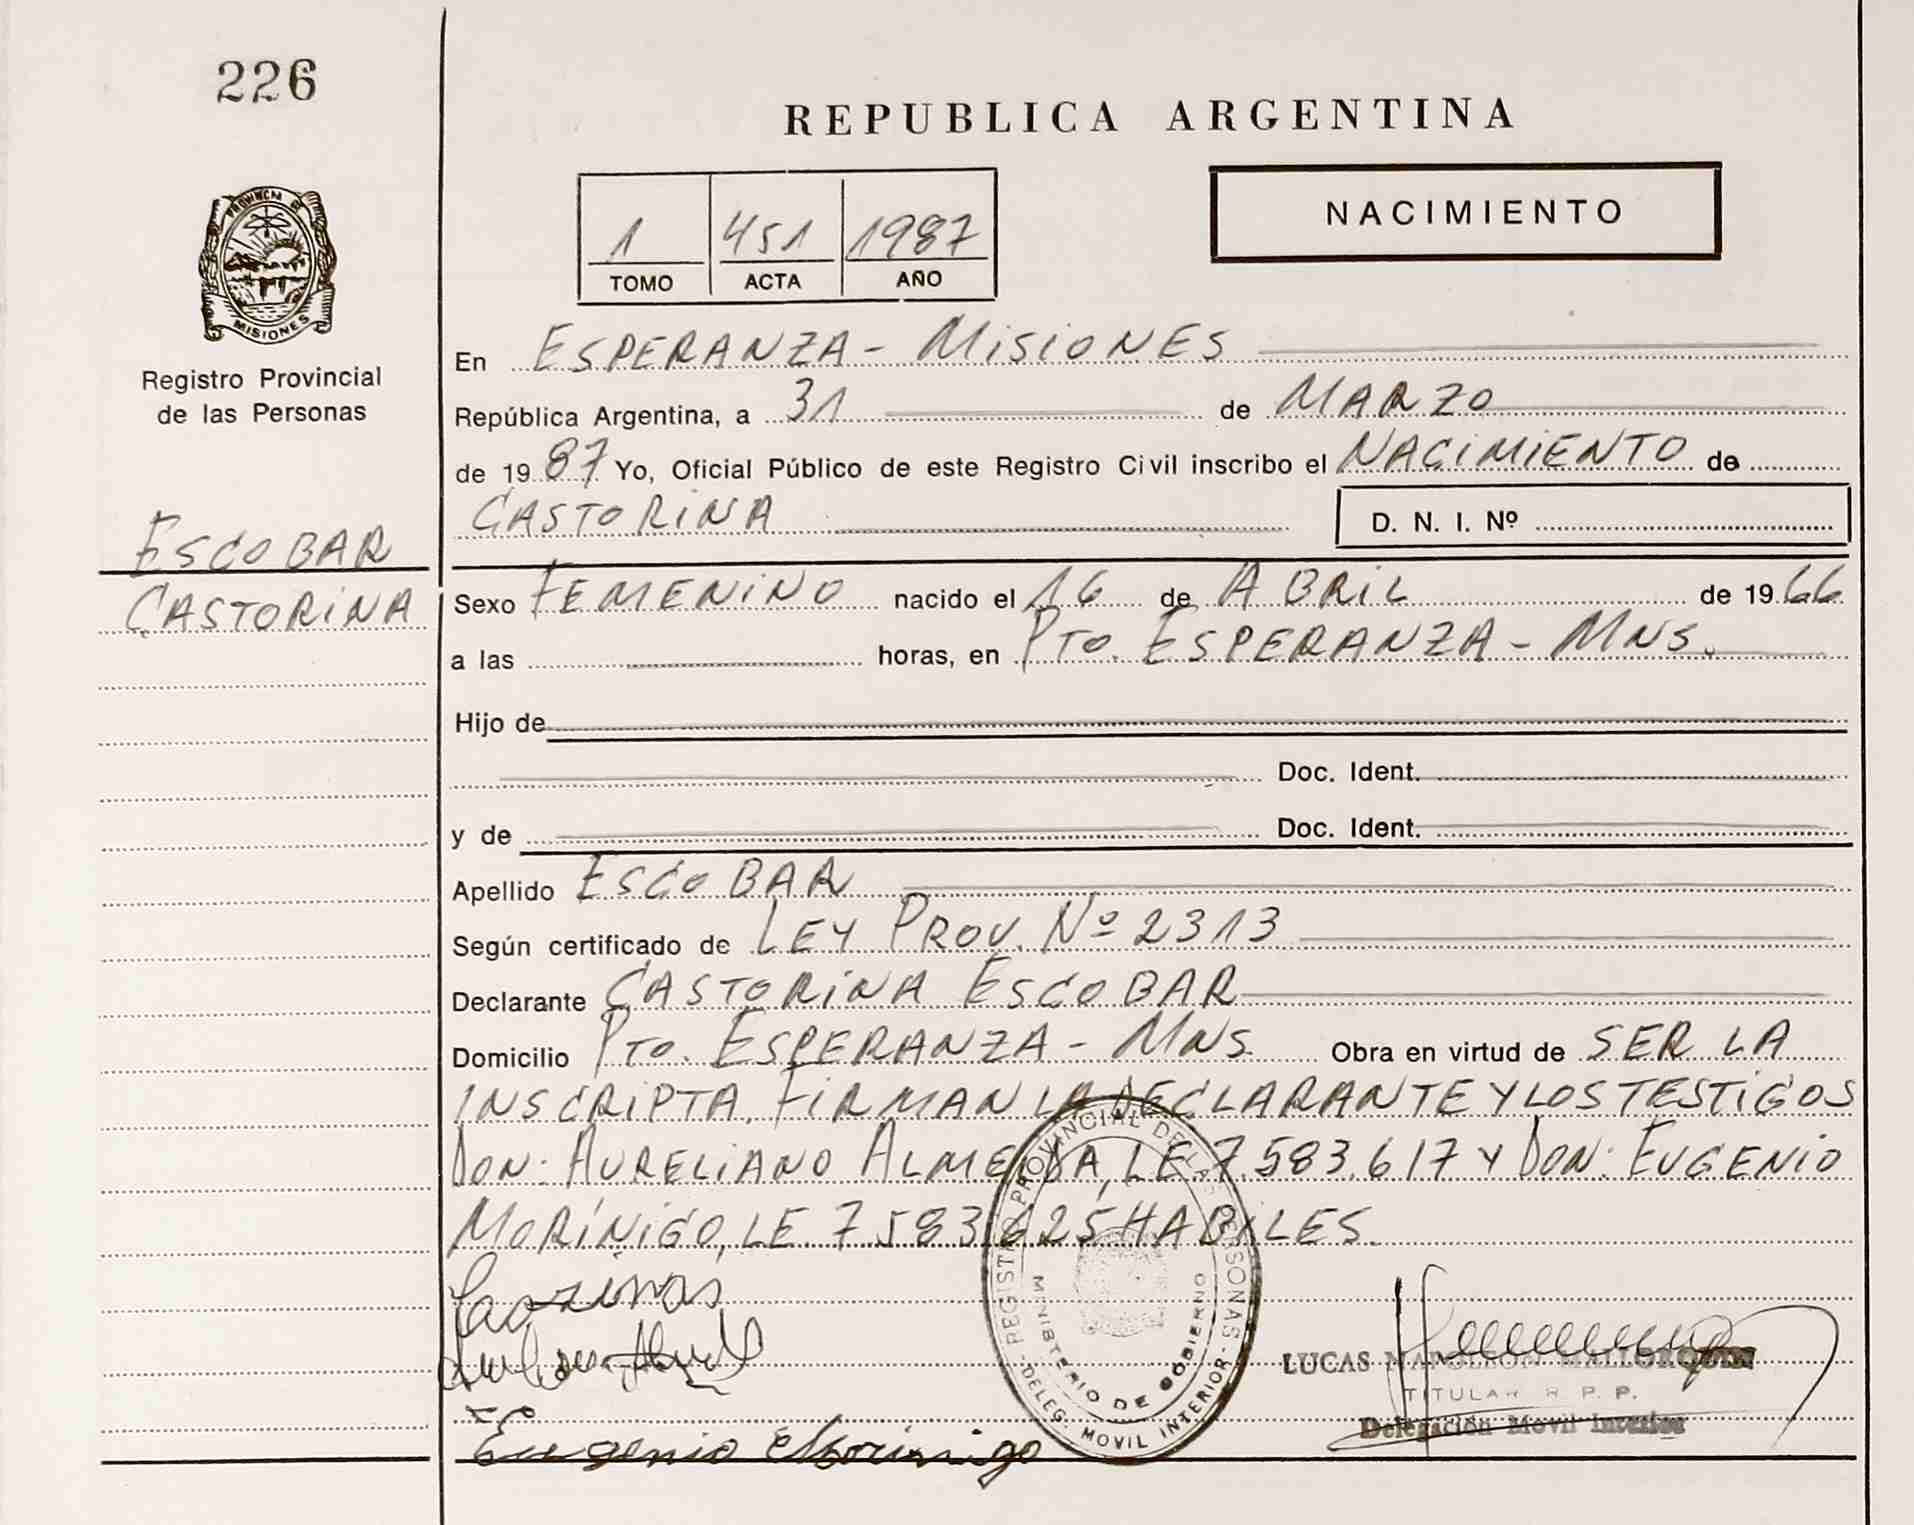 226
REPUBLICA ARGENTINA
1 451 1987
TOMO ACTA AÑO
NACIMIENTO
PROVINCIA DE
MISIONES
Registro Provincial
de las Personas
ESCOBAR
CASTORINA
En ESPERANZA - MISIONES
República Argentina, a 31 de MARZO
de 1987 Yo, Oficial Público de este Registro Civil inscribo el NACIMIENTO de
CASTORINA D. N. I. Nº
Sexo FEMENINO nacido el 16 de ABRIL de 1966
a las horas, en PTO. ESPERANZA - MNS.
Hijo de
Doc. Ident.
y de Doc. Ident.
Apellido ESCOBAR
Según certificado de LEY PROV. Nº 2313
Declarante CASTORINA ESCOBAR
Domicilio PTO. ESPERANZA - MNS. Obra en virtud de SER LA
INSCRIPTA, FIRMAN LA DECLARANTE Y LOS TESTIGOS
DON: AURELIANO ALMEIDA, LE 7.583.617 Y DON: EUGENIO
MORÍNIGO, LE. 7.583.625 HABILES.
REGISTRO PROVINCIAL DE LAS PERSONAS
MINISTERIO DE GOBIERNO
- DELEG. MOVIL INTERIOR -
LUCAS NAPOLEON MALLORQUIN
TITULAR R. P. P.
Delegación Movil Interior
Eugenio Morinigo